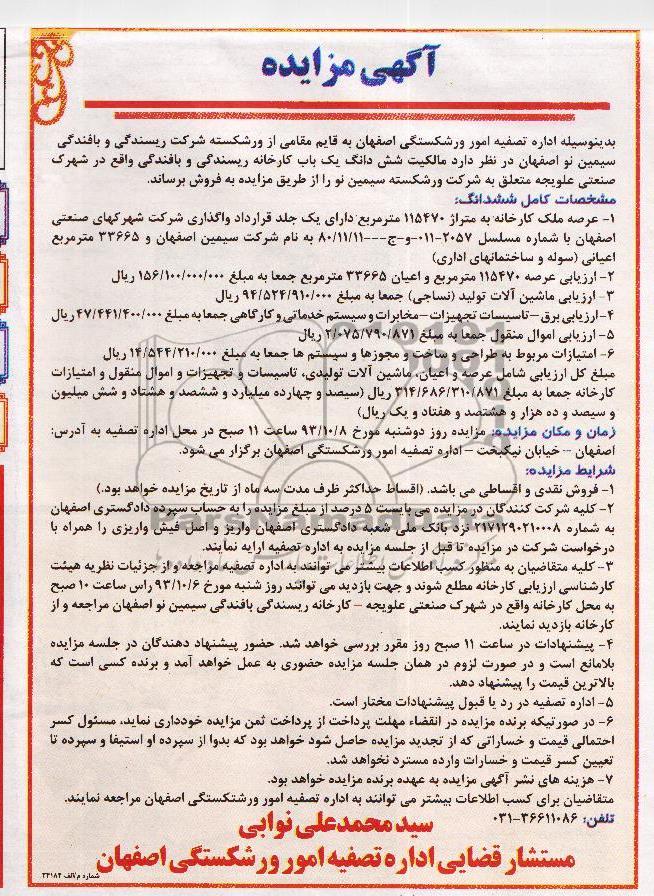 آگهی مزایده
بدینوسیله اداره تصفیه امور ورشکستگی اصفهان به قایم مقامی از ورشکسته شرکت ریسندگی و بافندگی
سیمین نو اصفهان در نظر دارد مالکیت شش دانگ یک باب کارخانه ریسندگی و بافندگی واقع در شهرک
صنعتی علویجه متعلق به شرکت ورشکسته سیمین نو را از طریق مزایده به فروش برساند.
مشخصات کامل ششدانگ:
۱- عرصه ملک کارخانه به متراژ ۱۱۵۴۷۰ مترمربع دارای یک جلد قرارداد واگذاری شرکت شهرکهای صنعتی
اصفهان با شماره مسلسل ۲۰۵۷-۰۱۱-و-ج---۸۰/۱۱/۱۱ به نام شرکت سیمین اصفهان و ۳۳۶۶۵ مترمربع
اعیانی (سوله و ساختمانهای اداری)
۲- ارزیابی عرصه ۱۱۵۴۷۰ مترمربع و اعیان ۳۳۶۶۵ مترمربع جمعا به مبلغ ۱۵۶/۱۰۰/۰۰۰/۰۰۰ ریال
۳- ارزیابی ماشین آلات تولید (نساجی) جمعا به مبلغ ۹۴/۵۲۴/۹۱۰/۰۰۰ ریال
۴- ارزیابی برق – تاسیسات تجهیزات – مخابرات و سیستم خدماتی و کارگاهی جمعا به مبلغ ۴۷/۴۴۱/۴۰۰/۰۰۰ ریال
۵- ارزیابی اموال منقول جمعا به مبلغ ۲/۰۷۵/۷۹۰/۸۷۱ ریال
۶- امتیازات مربوط به طراحی و ساخت و مجوزها و سیستم ها جمعا به مبلغ ۱۴/۵۴۴/۲۱۰/۰۰۰ ریال
مبلغ کل ارزیابی شامل عرصه و اعیان، ماشین آلات تولیدی، تاسیسات و تجهیزات و اموال منقول و امتیازات
کارخانه جمعا به مبلغ ۳۱۴/۶۸۶/۳۱۰/۸۷۱ ریال (سیصد و چهارده میلیارد و ششصد و هشتاد و شش میلیون
و سیصد و ده هزار و هشتصد و هفتاد و یک ریال)
زمان و مکان مزایده: مزایده روز دوشنبه مورخ ۹۳/۱۰/۸ ساعت ۱۱ صبح در محل اداره تصفیه به آدرس:
اصفهان – خیابان نیکبخت – اداره تصفیه امور ورشکستگی اصفهان برگزار می شود.
شرایط مزایده:
۱- فروش نقدی و اقساطی می باشد. (اقساط حداکثر ظرف مدت سه ماه از تاریخ مزایده خواهد بود.)
۲- کلیه شرکت کنندگان در مزایده می بایست ۵ درصد از مبلغ مزایده را به حساب سپرده دادگستری اصفهان
به شماره ۲۱۷۱۲۹۰۲۱۰۰۰۸ نزد بانک ملی شعبه دادگستری اصفهان واریز و اصل فیش واریزی را همراه با
درخواست شرکت در مزایده تا قبل از جلسه مزایده به اداره تصفیه ارایه نمایند.
۳- کلیه متقاضیان به منظور کسب اطلاعات بیشتر می توانند به اداره تصفیه مراجعه و از جزئیات نظریه هیئت
کارشناسی ارزیابی کارخانه مطلع شوند و جهت بازدید می توانند روز شنبه مورخ ۹۳/۱۰/۶ راس ساعت ۱۰ صبح
به محل کارخانه واقع در شهرک صنعتی علویجه – کارخانه ریسندگی بافندگی سیمین نو اصفهان مراجعه و از
کارخانه بازدید نمایند.
۴- پیشنهادات در ساعت ۱۱ صبح روز مقرر بررسی خواهد شد. حضور پیشنهاد دهندگان در جلسه مزایده
بلامانع است و در صورت لزوم در همان جلسه مزایده حضوری به عمل خواهد آمد و برنده کسی است که
بالاترین قیمت را پیشنهاد دهد.
۵- اداره تصفیه در رد یا قبول پیشنهادات مختار است.
۶- در صورتیکه برنده مزایده در انقضاء مهلت پرداخت از پرداخت ثمن مزایده خودداری نماید، مسئول کسر
احتمالی قیمت و خساراتی که از تجدید مزایده حاصل شود خواهد بود که بدوا از سپرده او استیفا و سپرده تا
تعیین کسر قیمت و خسارات وارده مسترد نخواهد شد.
۷- هزینه های نشر آگهی مزایده به عهده برنده مزایده خواهد بود.
متقاضیان برای کسب اطلاعات بیشتر می توانند به اداره تصفیه امور ورشتکستگی اصفهان مراجعه نمایند.
تلفن: ۳۶۶۱۱۰۸۶-۰۳۱
سید محمدعلی نوابی
مستشار قضایی اداره تصفیه امور ورشکستگی اصفهان
شماره م/الف ۲۴۱۸۴